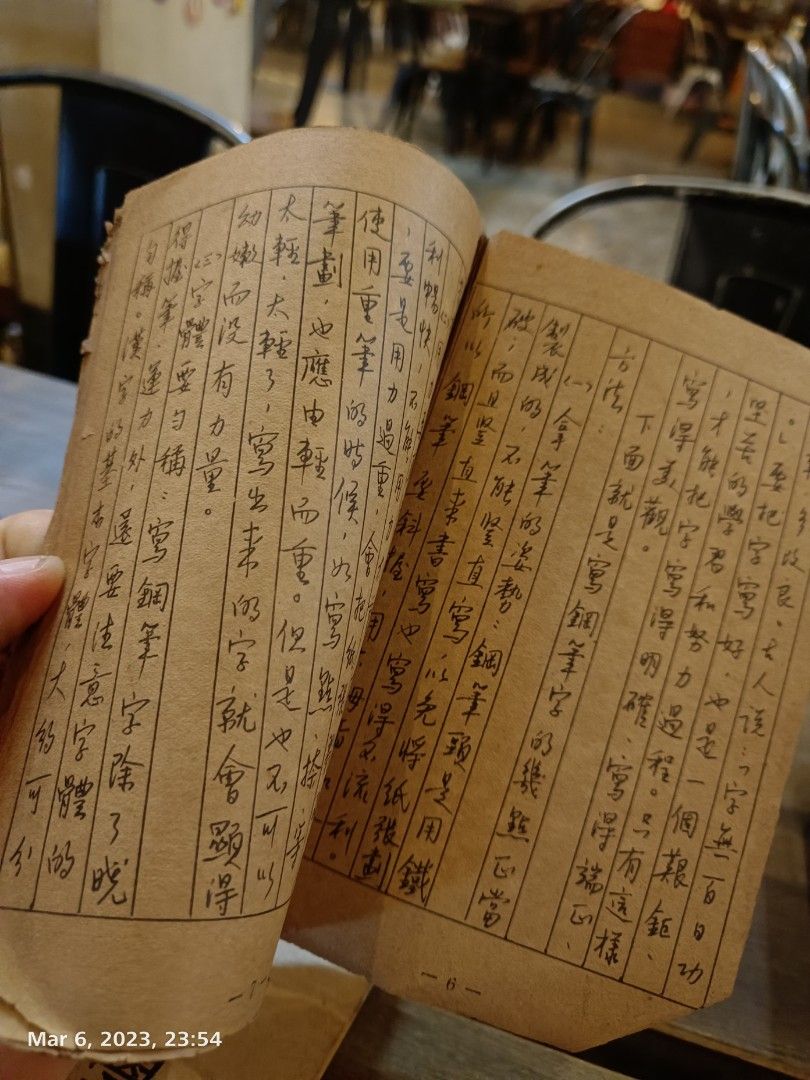 多改良。古人說：「字無百日功
。」要把字寫好，也是一個艱鉅、
堅苦的學習和努力過程。只有這樣
，才能把字寫得明確、寫得端正、
寫得美觀。
下面就是寫鋼筆字的幾點正當
方法：
㈠拿筆的姿勢：鋼筆頭是用鐵
製成的，不能豎直寫，以免將紙張劃
破；而且豎直來書寫也寫得不流利。
所以鋼筆要斜握，用
— 6 —
利暢快，不能用
，要是用力過重，會把紙
使用重筆的時候，如寫點、捺、等
筆劃，也應由輕而重。但是也不可以
太輕，太輕了，寫出來的字就會顯得
幼嫩而没有力量。
㈢字體要勻稱：寫鋼筆字除了曉
得握筆、運力外，還要注意字體的
勻稱。漢字的基本字體，大約可分
— 7 —
Mar 6, 2023, 23:54